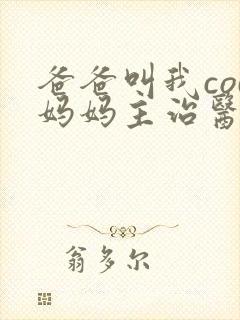 爸爸叫我co
妈妈主治醫
翁多尔